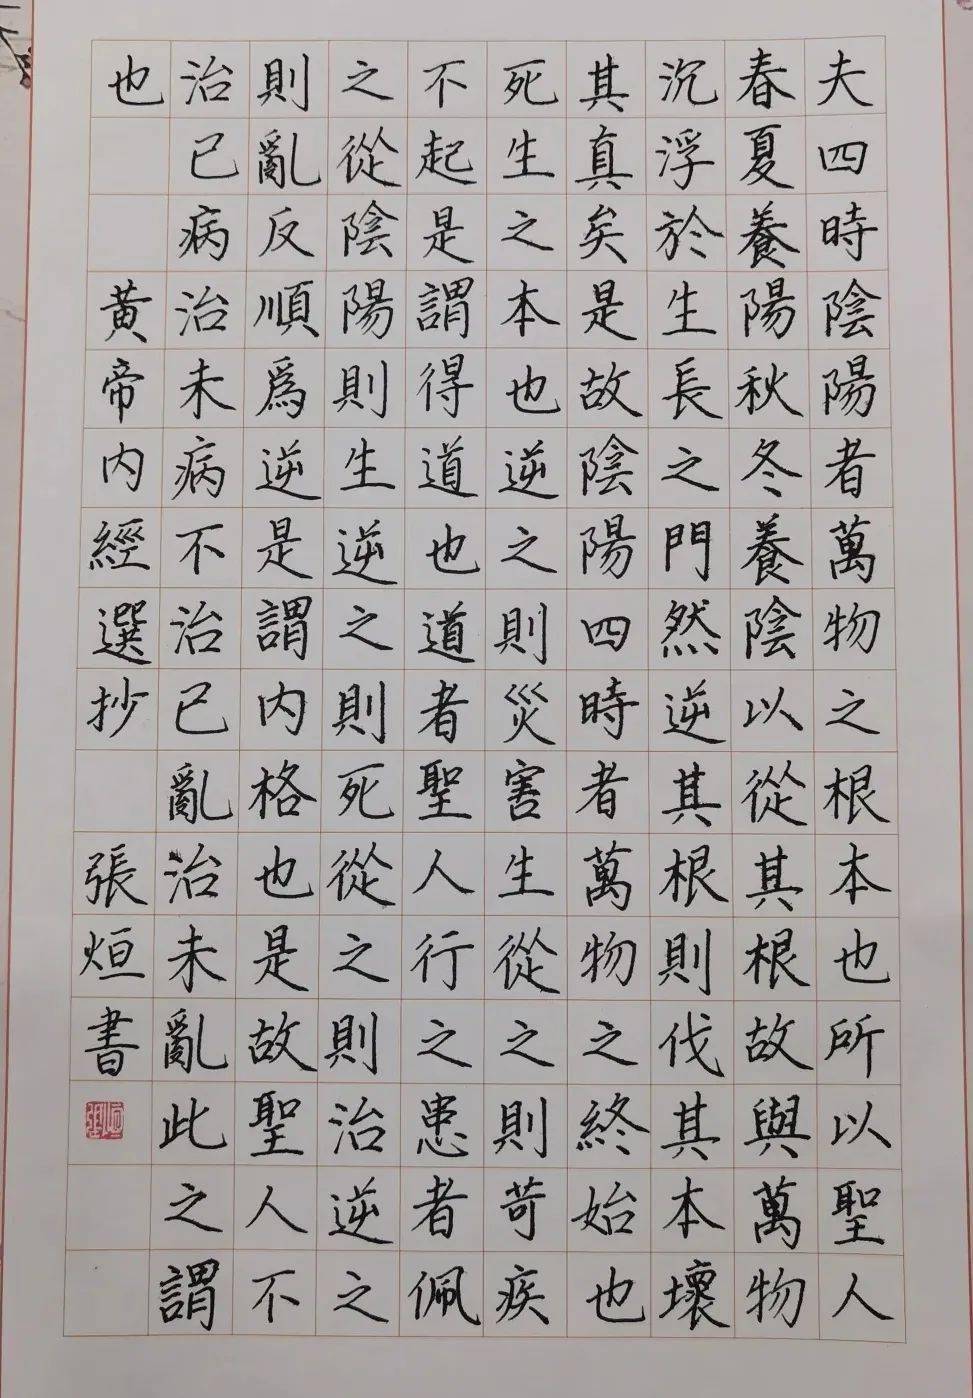 夫四時陰陽者萬物之根本也所以聖人
春夏養陽秋冬養陰以從其根故與萬物
沉浮於生長之門然逆其根則伐其本壞
其真矣是故陰陽四時者萬物之終始也
死生之本也逆之則災害生從之則苛疾
不起是謂得道也道者聖人行之患者佩
之從陰陽則生逆之則死從之則治逆之
則亂反順爲逆是謂內格也是故聖人不
治已病治未病不治已亂治未亂此之謂
也 黃帝內經選抄 張烜書